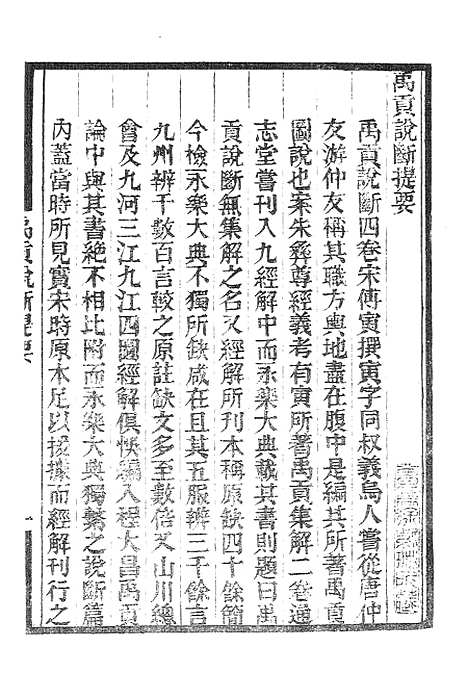 禹貢說斷提要
禹貢說斷四卷宋傅寅撰寅字同叔義烏人嘗從唐仲
友游仲友稱其職方輿地盡在腹中是編其所著禹貢
圖說也案朱彝尊經義考有寅所著禹貢集解二卷通
志堂嘗刊入九經解中而永樂大典載其書則題曰禹
貢說斷無集解之名又經解所刊本稱原缺四十餘簡
今檢永樂大典不獨所缺咸在且其五服辨三千餘言
九州辨千數百言較之原註缺文多至數倍又山川總
會及九河三江九江四圖經解俱悞編入程大昌禹貢
論中與其書絶不相比附而永樂大典獨繫之說斷篇
內蓋當時所見實宋時原本足以援據而經解刊行之
禹貢說斷提要
一